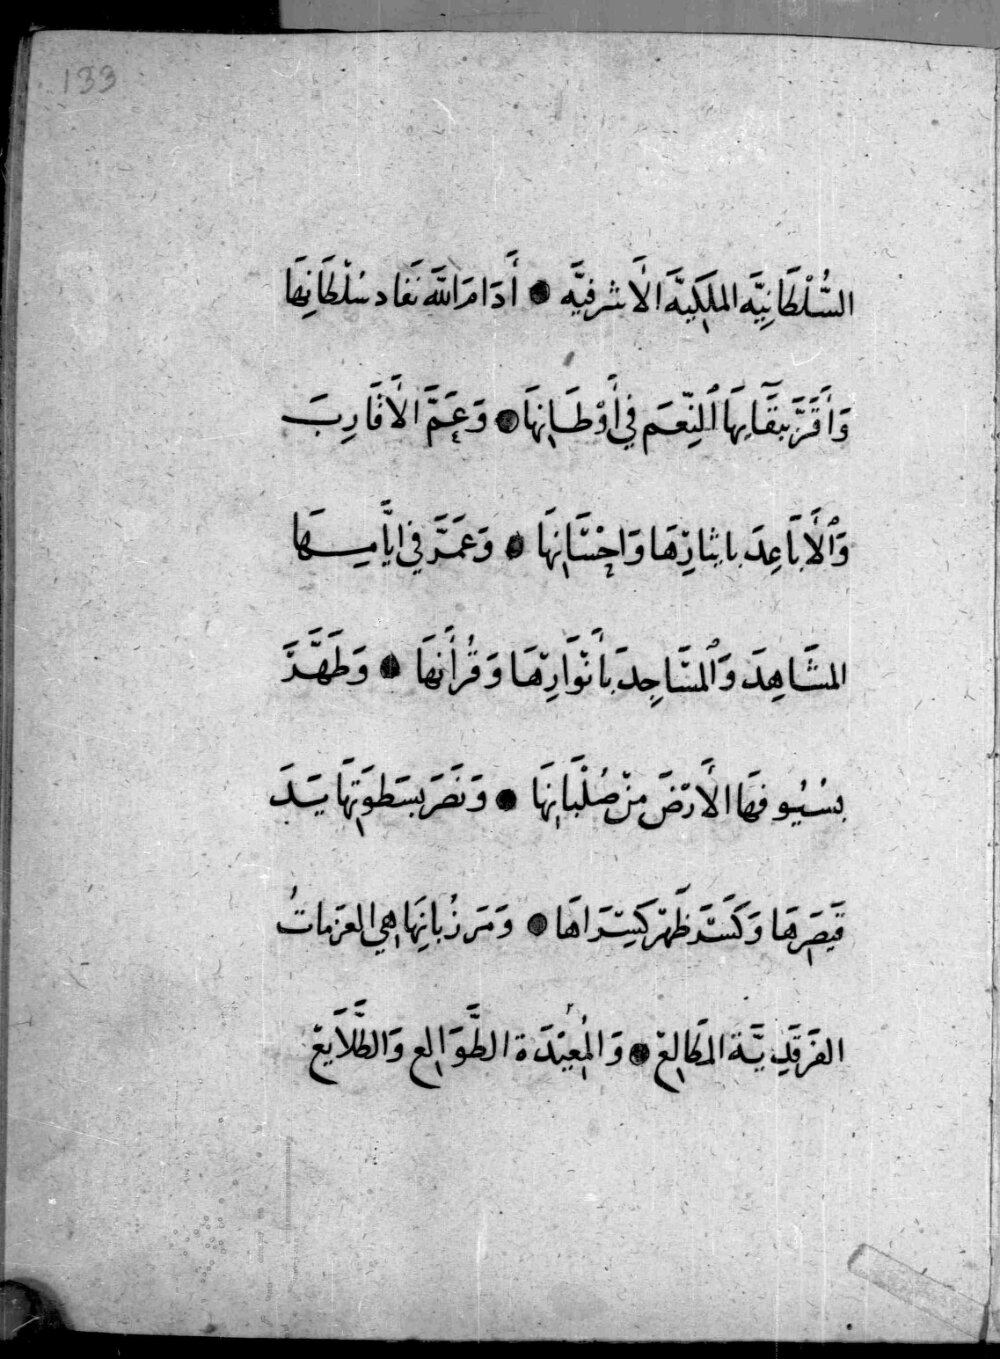 133
السُّلْطَانِيَّه المَلَكِيَّه الأَشرفِيَّه ● أَدَامَ اللَّه نَفَاد سُلْطَانِهَا
وَأَقَرَّ بِبَقَآيِهَا ٱلنِّعَم فِي أَوْطَانِهَا ● وَعَمَّ الأَقَارِبَ
وَٱلأَبَاعِدَ بايثارِهَا وَاحْسَانِهَا ● وَعَمَرَ في ايَّامِهَا
المشَاهِدَ وَٱلمسَاجِدَ بأَنْوَارِهَا وَقُرأَنهَا ● وَطَهَّرَ
بسُيُوفهَا الأَرْضَ مِنْ صُلْبَانِهَا ● وَنَصَرَ بسَطوَتِهَا
قَيصَرهَا وَكَسَرَ ظَهْر كِسْرَاهَا ● وَمَرزُبانِهَا هي العَزماتُ
الفَرقَدِيَّة المَطَالِعْ ● وَالمُعِيْدَة الطَّوَالِع وَالطَّلَايعْ